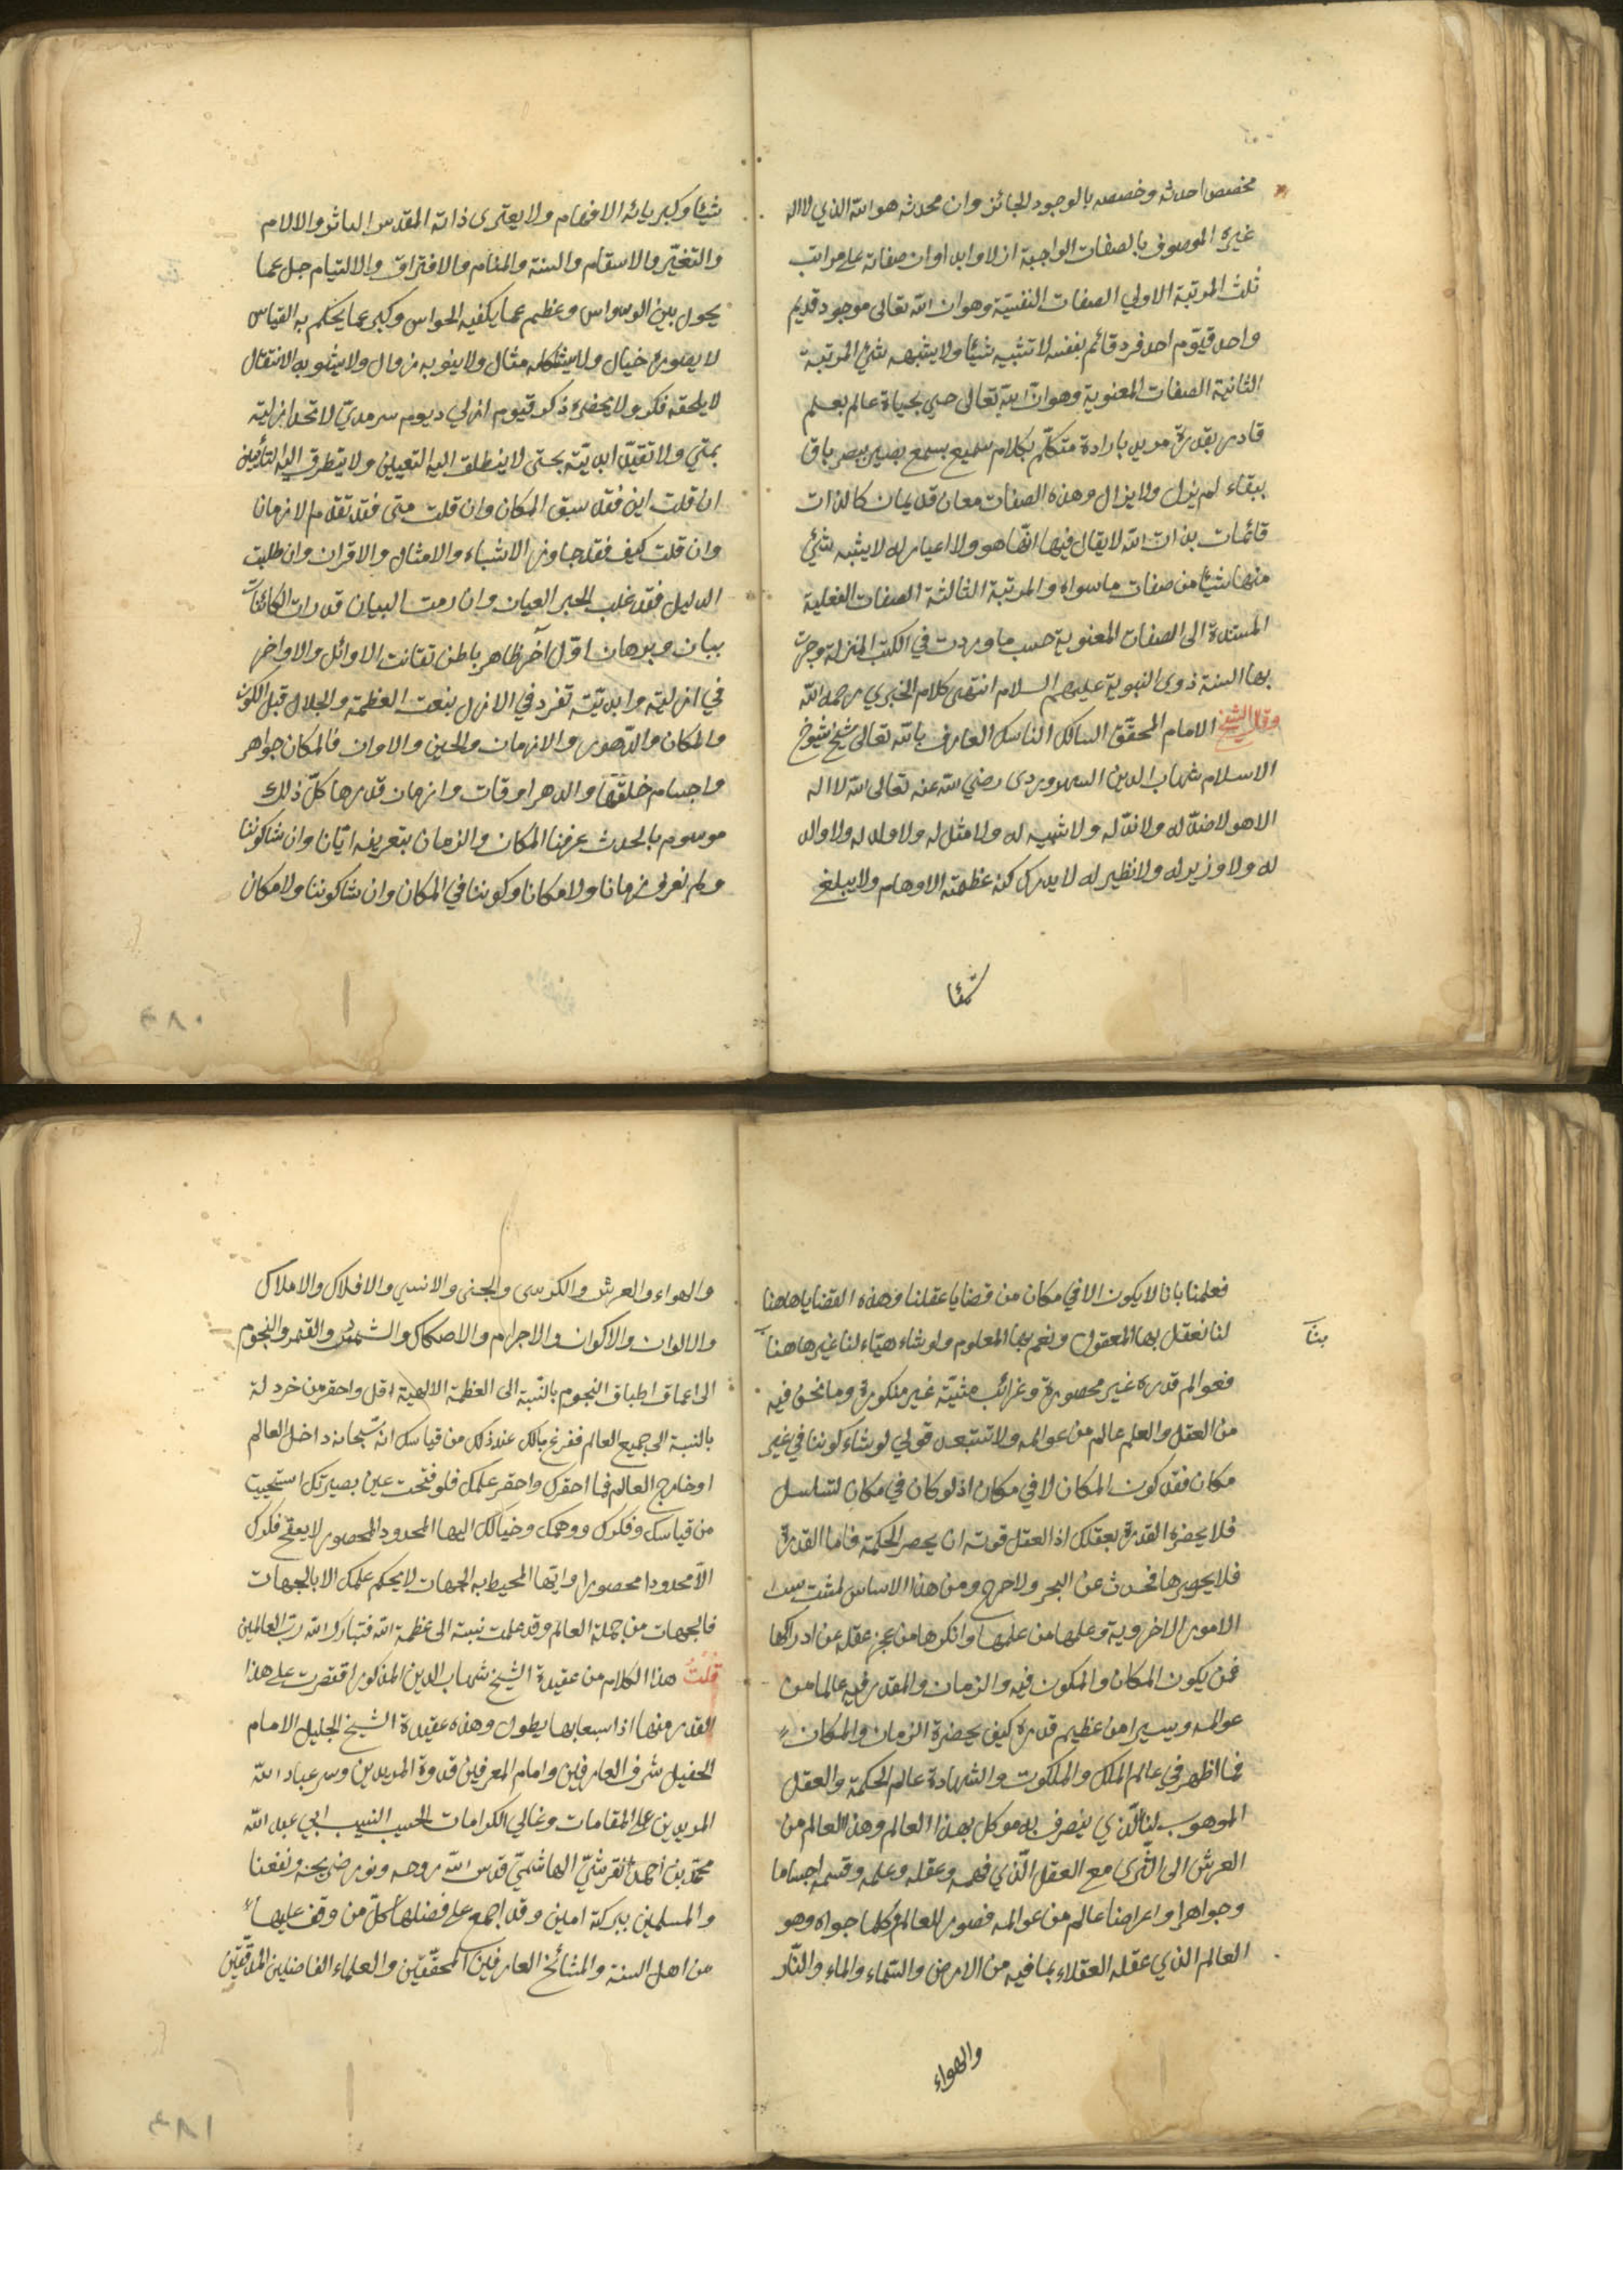 مخصص احدثه وخصصه بالوجود الجائز وان محدثه هو الله الذي لا اله
غيره الموصوف بالصفات الواجبة ازلا وابدا وان صفاته على مراتب
ثلث المرتبة الاولي الصفات النفسية وهو ان الله تعالى موجود قديم
واحد قيّوم احد فرد قائم بنفسه لا تشبيه شيئا ولا يشبهه شئ المرتبة
الثانية الصفات المعنوية وهو ان الله تعالى حيى بحياة عالم بعلم
قادر بقدرة مريد بارادة متكلّم بكلام سميع بسمع بصير ببصر باق
ببقاء لم يزل ولا يزال وهذه الصفات معان قديمات كالذات
قائمات بذات الله لا يقال فيها انّها هو ولا اغيار له لا يشبه شئ
منها شيئا من صفات ما سواه والمرتبة الثالثة الصفات الفعلية
المستندة الى الصفات المعنوية حسب ما وردت في الكتب المنزلة وجرت
بها السنة ذوى النبوية عليهم السلام انتهى كلام الخبري رحمه الله
وقال الشيخ الامام المحقّق السالك الناسك العارف بالله تعالى شيخ شيوخ
الاسلام شهاب الدين السهروردى رضي الله عنه تعالى الله لا اله
الا هو لا ضدّ له ولا ندّ له ولا شبيه له ولا مثل له ولا ولد له ولا والد
له ولا وزير له ولا نظير له لا يدرك كنه عظمته الاوهام ولا يبلغ
شيئا
شيئا وكبريائه الافهام ولا يعترى ذاته المقدس التاثر والالام
والتغيّر والاسقام والسنة والمنام والافتراق والالتيام جل عما
يحول بين الوسواس وعظيم عما يكفيه الحواس وكبر عما يحكم به القياس
لا يصوره خيال ولا يشكله مثال ولا ينوبه زوال ولا يشوبه الانتقال
لا يلحقه فكر ولا يحضره ذكر قيوم ازلي ديوم سرمديّ لا تحد ازليته
بمتي ولا تقيّد ابديّته بحتى لا ينطلق اليه التعيين ولا يتطرق اليه التأيين
ان قلت اين فقد سبق المكان وان قلت متى فقد تقدم الازمانا
وان قلت كيف فقد جاوز الاشباء والامثال والاقران وان طلبت
الدليل فقد غلب الخبر العيان وان رمت البيان قدرات الكائنات
بيان وبرهان اوّل آخر ظاهر باطن تفانت الاوائل والاواخر
في ازليته وابديّته تفرد في الازل بنعت العظمة والجلال قبل الكون
والمكان والدّهور والازمان والحين والاوان فالمكان جواهر
واجسام خلقها والدهر اوقات وازمان قدرها كلّ ذلك
موسوم بالحدث عرفنا المكان والزمان بتعريفه ايّان وان شاكوننا
ولم نعرف زمانا ولا مكانا وكوننا في المكان وان شاكوننا ولا مكان
فعلمنا بانا لا يكون الا في مكان من قضايا عقلنا وهذه القضايا هاهنا
لنا نعقل بها المعقول ونعم بها المعلوم ولو شاء هيّاء لنا غيرها هنا
بنا
فعوالم قدره غير محصورة وغرائب مشيّة غير منكورة وما نحن فيه
من العقل والعلم عالم من عوالمه ولا تستبعد قولي لو شاء كوننا في غير
مكان فقد كون المكان لا في مكان اذ لو كان في مكان لتسلسل
فلا يحضره القدرة بعقلك اذ العقل قوته ان يحصر الحكمة فاما القدرة
فلا يحويرها فحدث عن البحر ولا حرج ومن هذا الاساس لمثبت سدا
الامور الاخروية وعلمها من علمها وانكرها من عجز عقله عن ادراكها
فمن يكون المكان والمكون فيه والزمان والمقدر فيه عالما من
عوالمه ويسيرا من عظيم قدره كيف يحضرة الزمان والمكان
فما اظهر في عالم الملك والملكوت والشهادة عالم الحكمة والعقل
الموهوب لنا الّذي يتصرف به موكل بهذا العالم وهذا العالم من
العرش الى الثرى مع العقل الّذي فهمه وعقله وعلمه وقسمه اجساما
وجواهرا واعراضا عالم من عوالمه فصور العالم وكلما حواه وهو
العالم الذي عقله العقلاء بما فيه من الارض والسّماء والماء والنّار
والهواء
والهواء والعرش والكرسى والجنى والانسي والافلاك والاملاك
والالوان والاكوان والاجرام والاصكاك والشمس والقمر والنجوم
الى اعماق اطباق النجوم بالنّسبة الى العظمة الالهية اقل واحقر من خردلة
بالنسبة الى جميع العالم ففرغ بالك عند ذلك من قياسك انه سبحانه داخل العالم
او خارج العالم فما احقرك واحقر علمك فلو فتحت عين بصيرتك استحييت
من قياسك وفكرك ووهمك وخيالك ايها المحدود المحصور لا يعقح فكرك
الا محدودا محصورا وايّها المحيط به الجهات لا يحكم علمك الا بالجهات
فالجهات من جملة العالم وقد علمت نسبة الى عظمة الله فتبارك الله رب العالمين
قلتُ هذا الكلام من عقيدة الشيخ شهاب الدين المذكور اقتصرت على هذا
القدر منها اذ استعابها يطول وهذه عقيدة الشيخ الجليل الامام
الحفيل شرف العارفين وامام المعرفين قدوة المريدين وسر عباد الله
المريدين على المقامات وغالي الكرامات الحسيب النسيب ابي عبد الله
محمّد بن احمد القرشيّ الهاشميّ قدس الله روحه ونور ضريحه ونفعنا
والمسلمين ببركته امين وقد اجمع على فضلها كلّ من وقف عليها
من اهل السنة والمشائخ العارفين المحقّقين والعلماء الفاضلين المدقّقين
٣٨٠
٣٨١